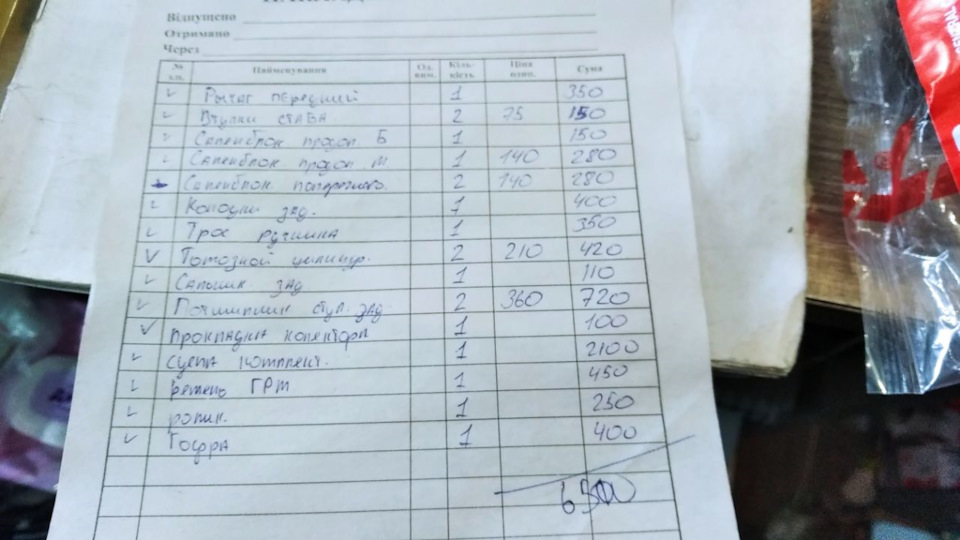 Відпущено
Отримано
Через
№ з.п. Найменування Од. вим. Кіль-кість Ціна один. Сума
Рычаг передний 1 350
Втулки стаба 2 75 150
Сапенблок продол Б 1 150
Сапенблок продол М 1 140 280
Сапенблок поперечного 2 140 280
Колодки зад. 1 400
Трос ручника 1 350
Томозной цилинд. 2 210 420
Сальник зад 1 110
Почшипник ступ. зад 2 360 720
Прокладка колектора 1 100
сцепл комплект. 1 2100
ремень ГРМ 1 450
ролик. 1 250
Гофра 1 400